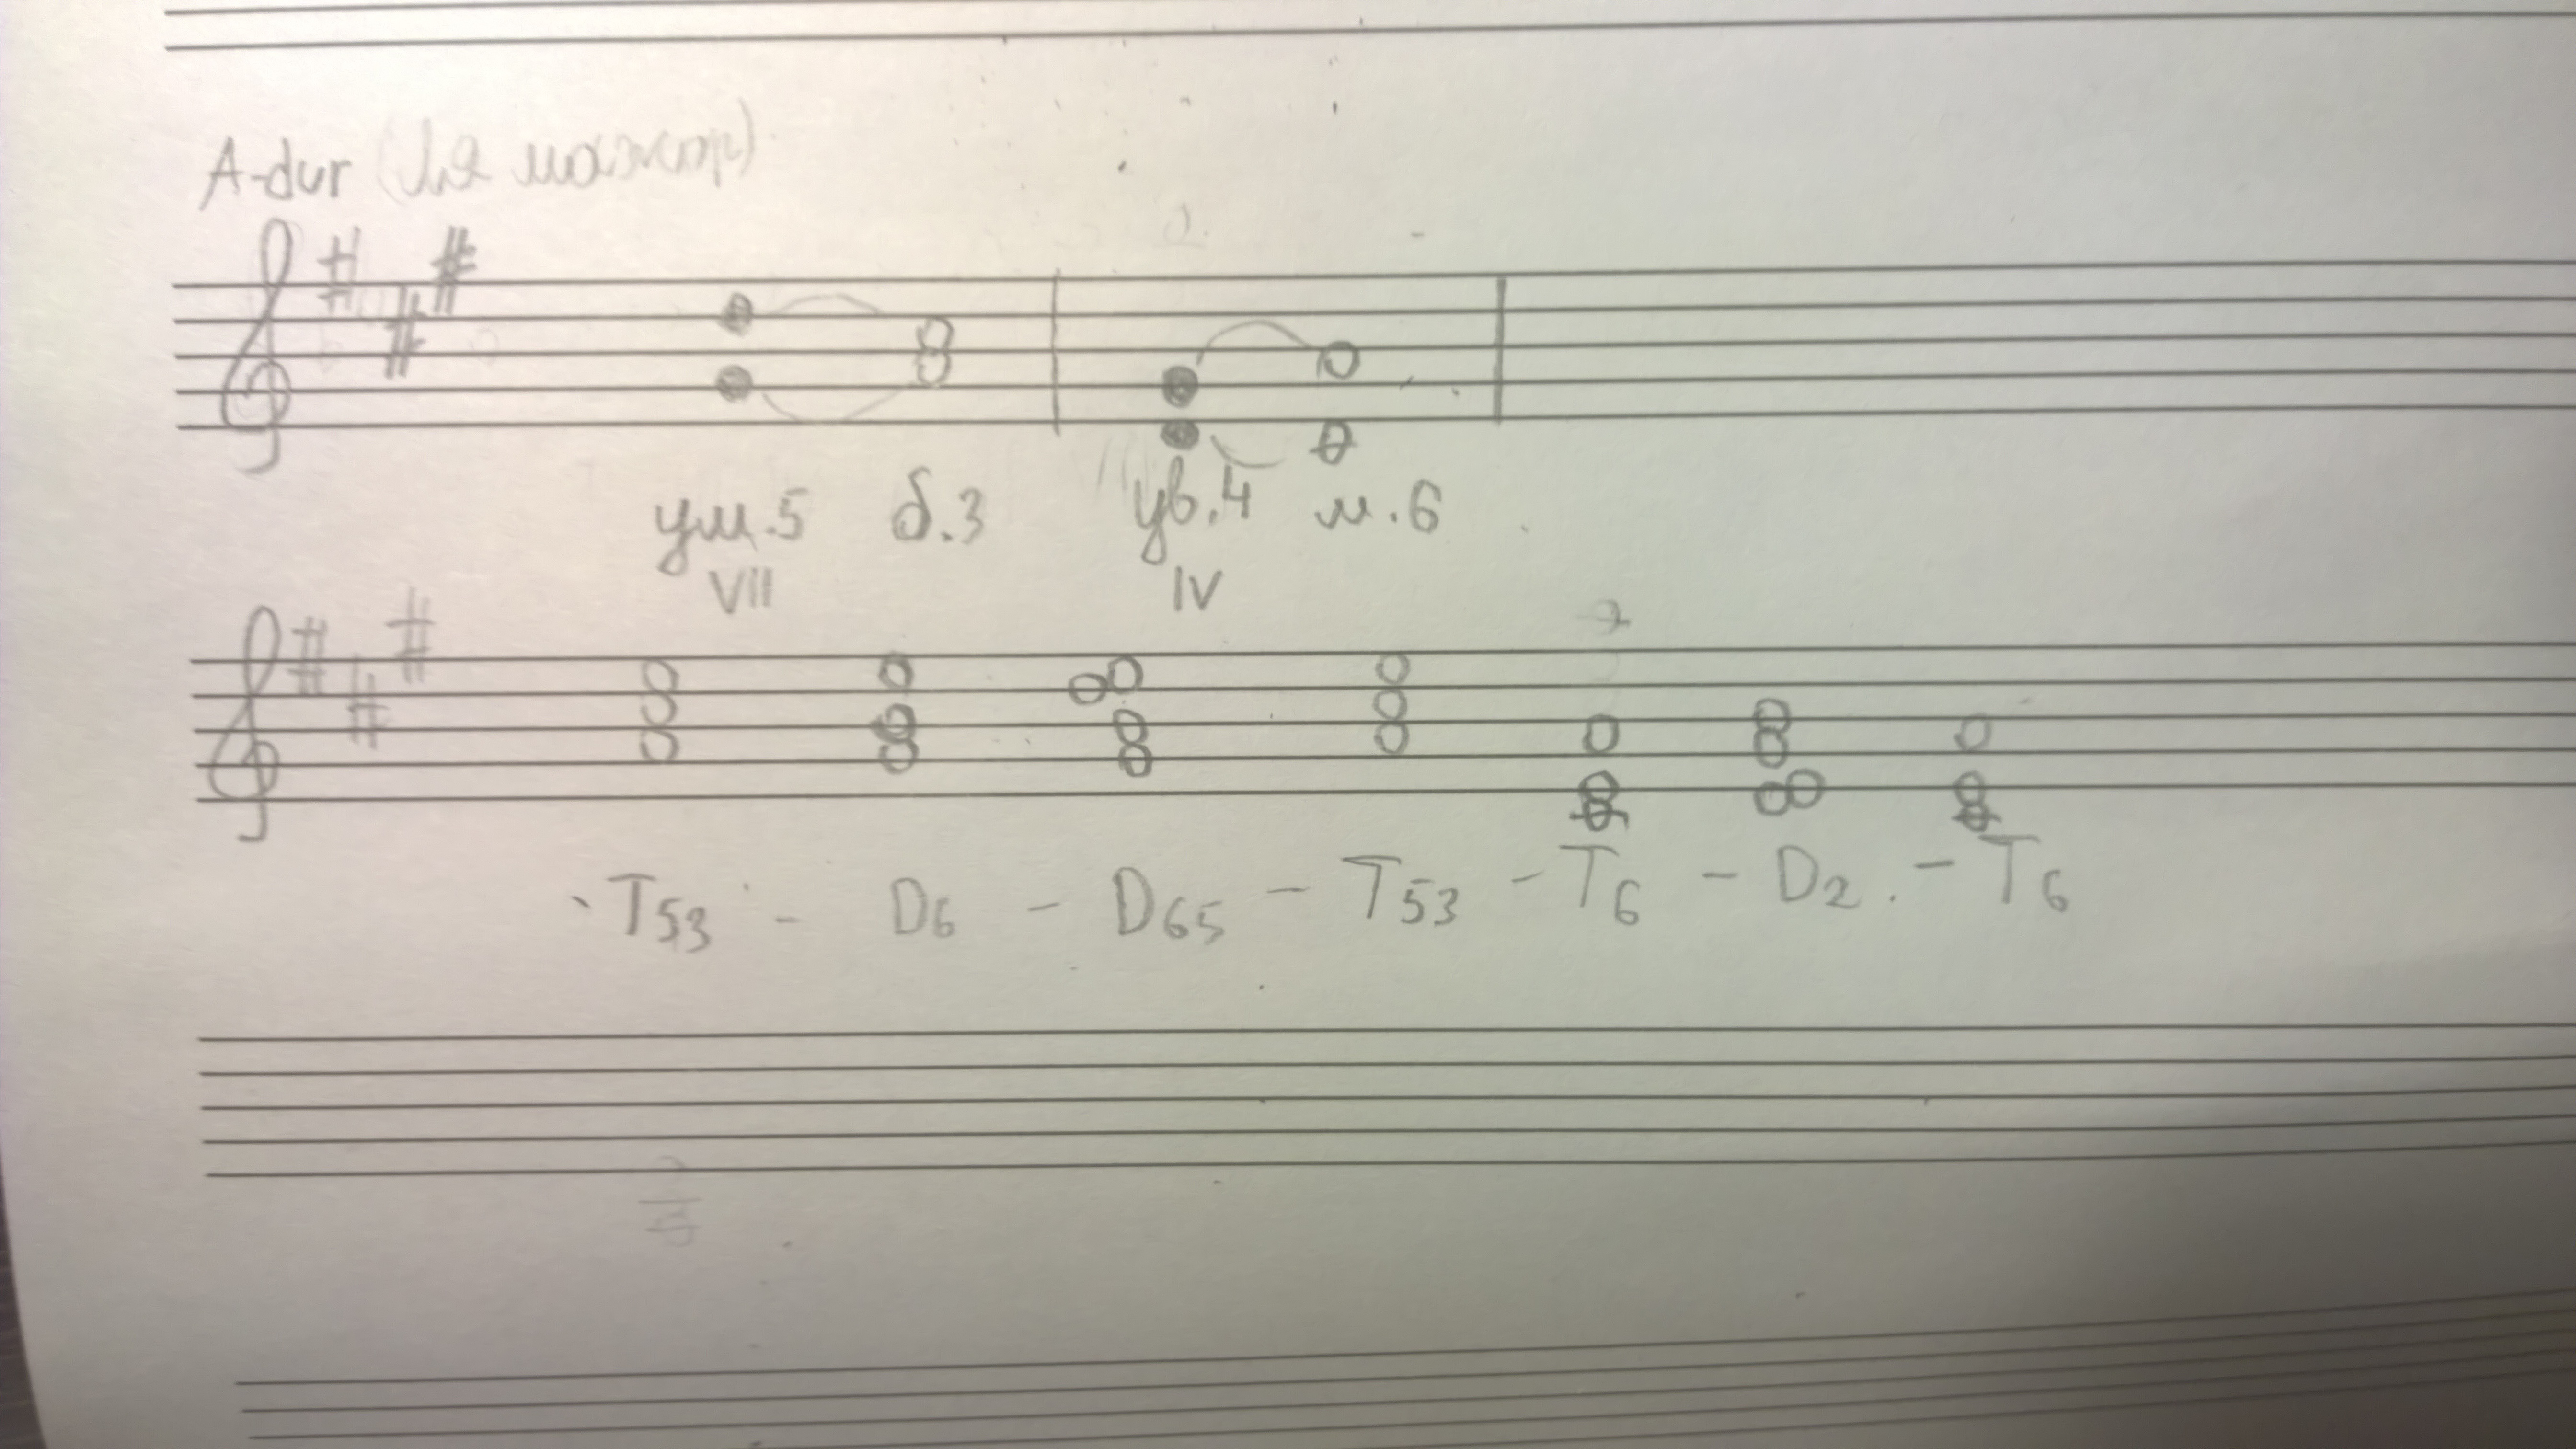 A-dur (Ля мажор)
ум.5 б.3 ув.4 м.6
VII IV
T53 - D6 - D65 - T53 - T6 - D2. - T6